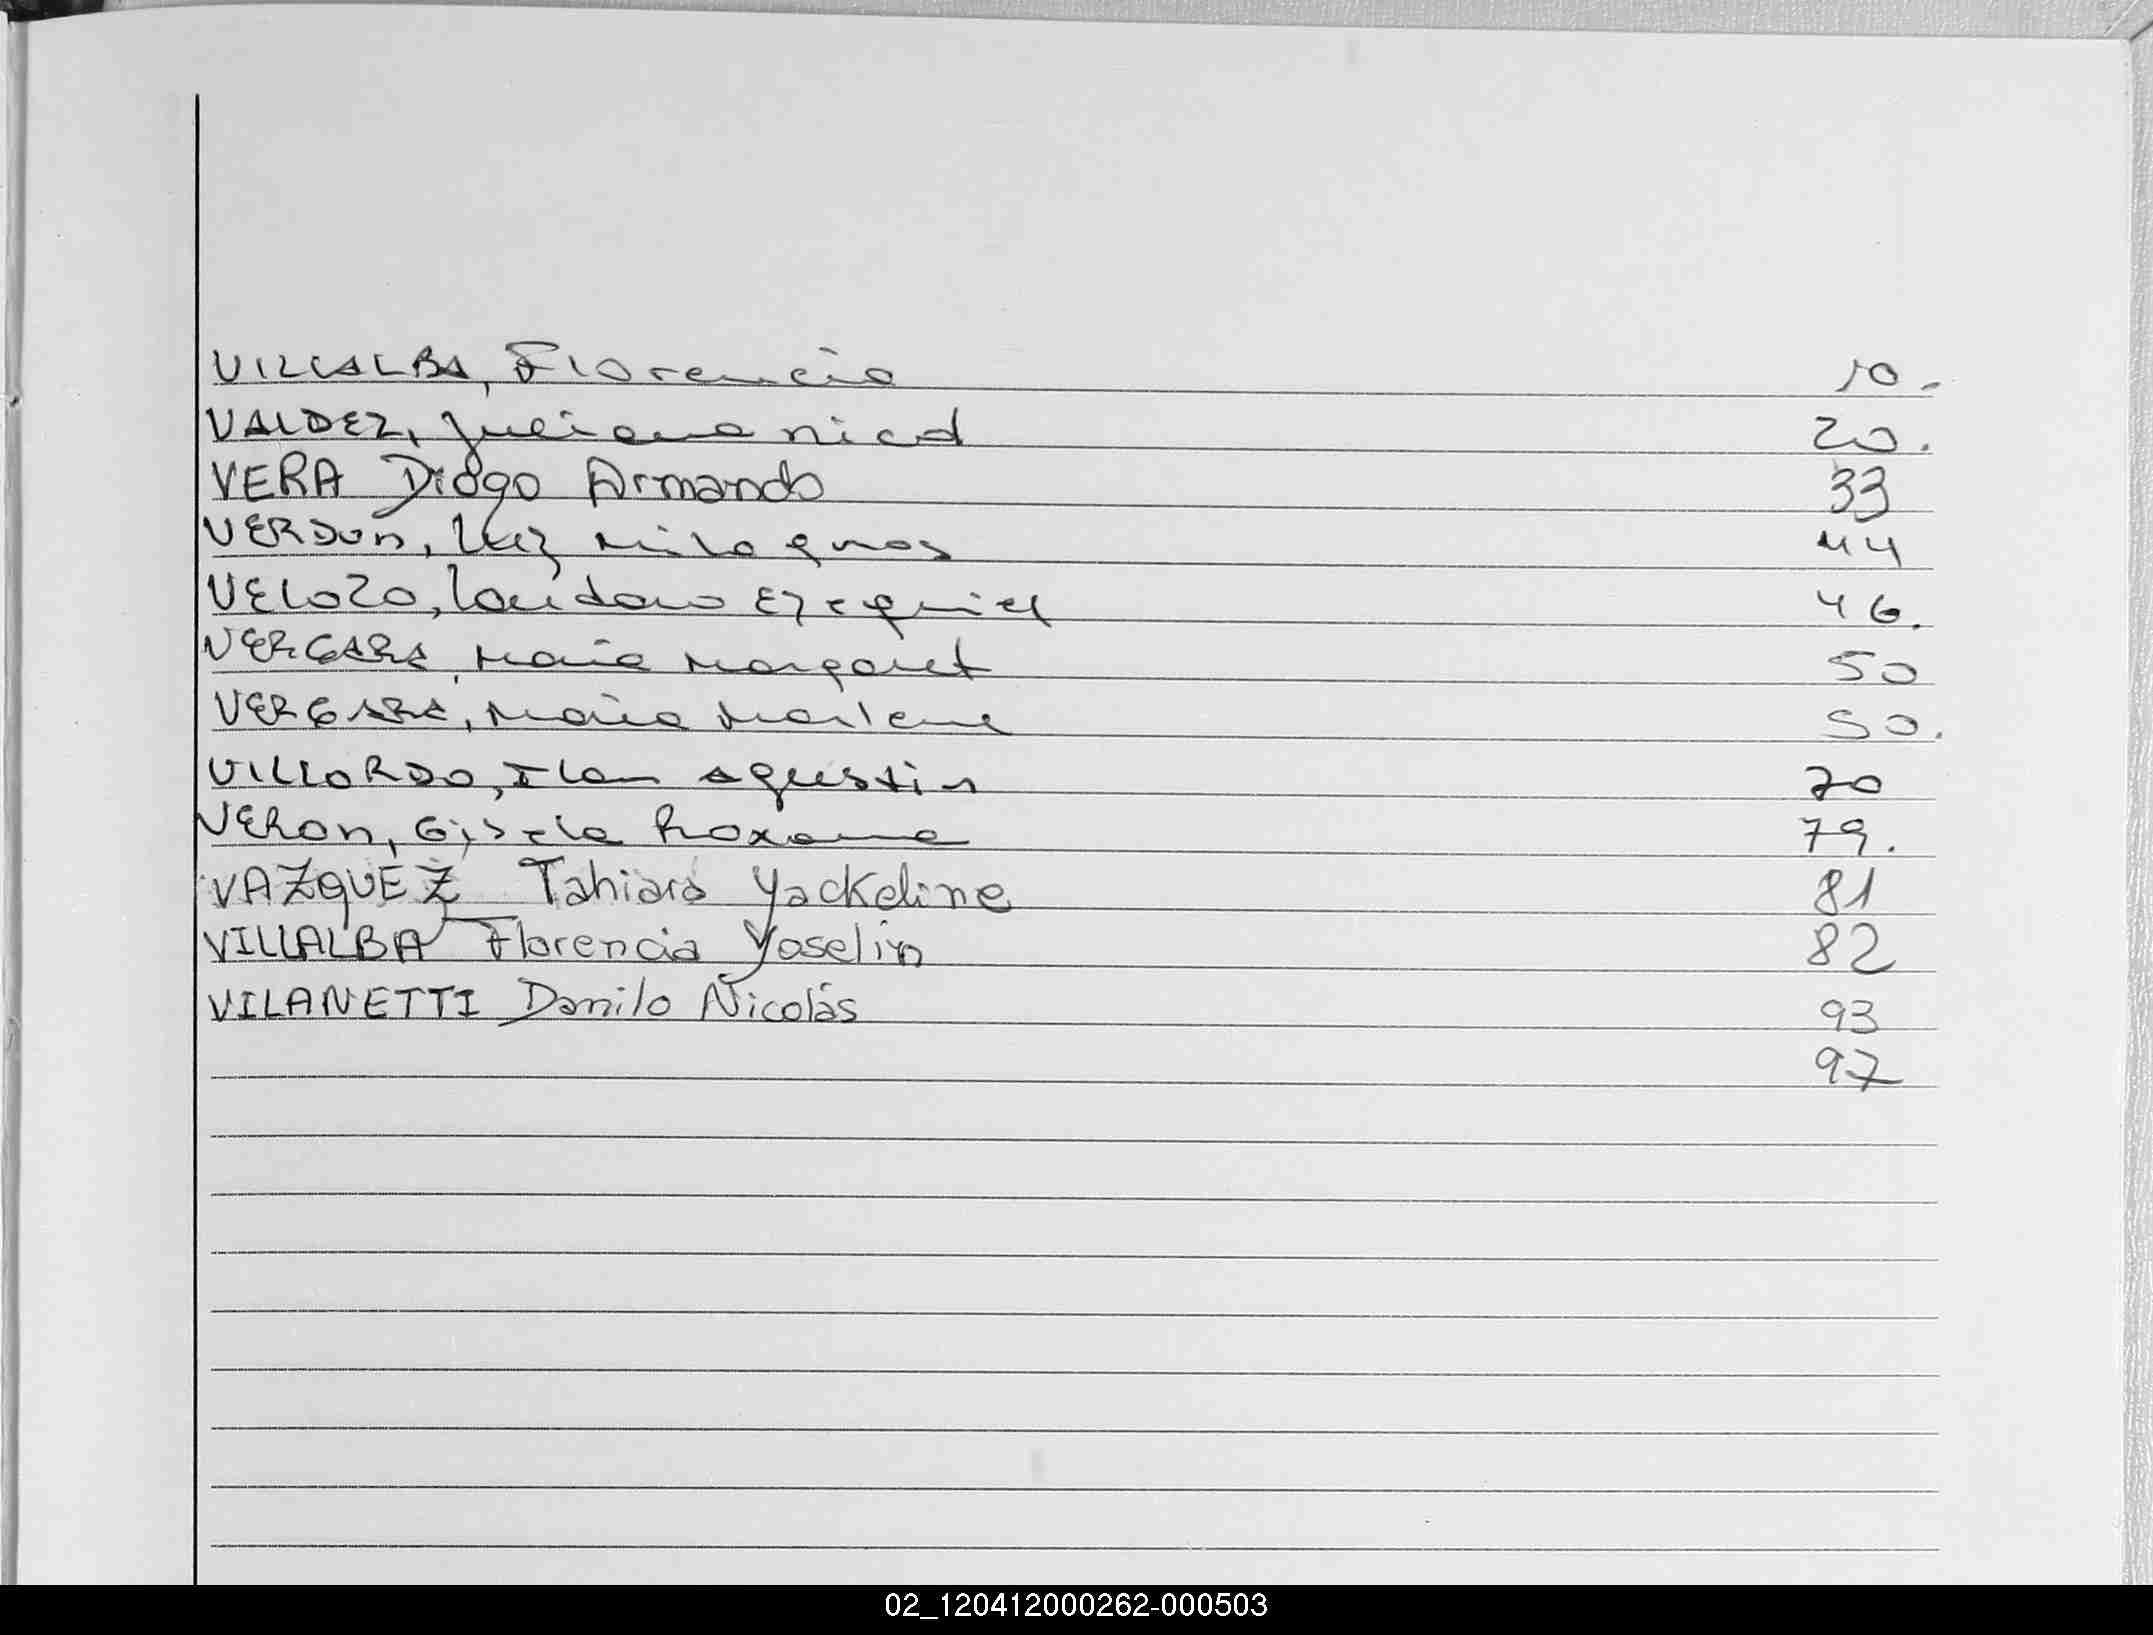 VILLALBA, Florencia 10.-
VALDEZ, Juliana nicol 20.
VERA Diego Armando 33
VERDUN, Luz Milagros 44
VELOZO, Ezequiel 46.
VERGARA, Maria Margaret 50
VERGARA, Maria Marlene 50.
VILLORDO, Ilan Agustin 70
VERON, Gisela Roxana 79.
VAZQUEZ Tahiara Yackeline 81
VILLALBA Florencia Yoselin 82
VILANETTI Danilo Nicolás 93
97
02_120412000262-000503